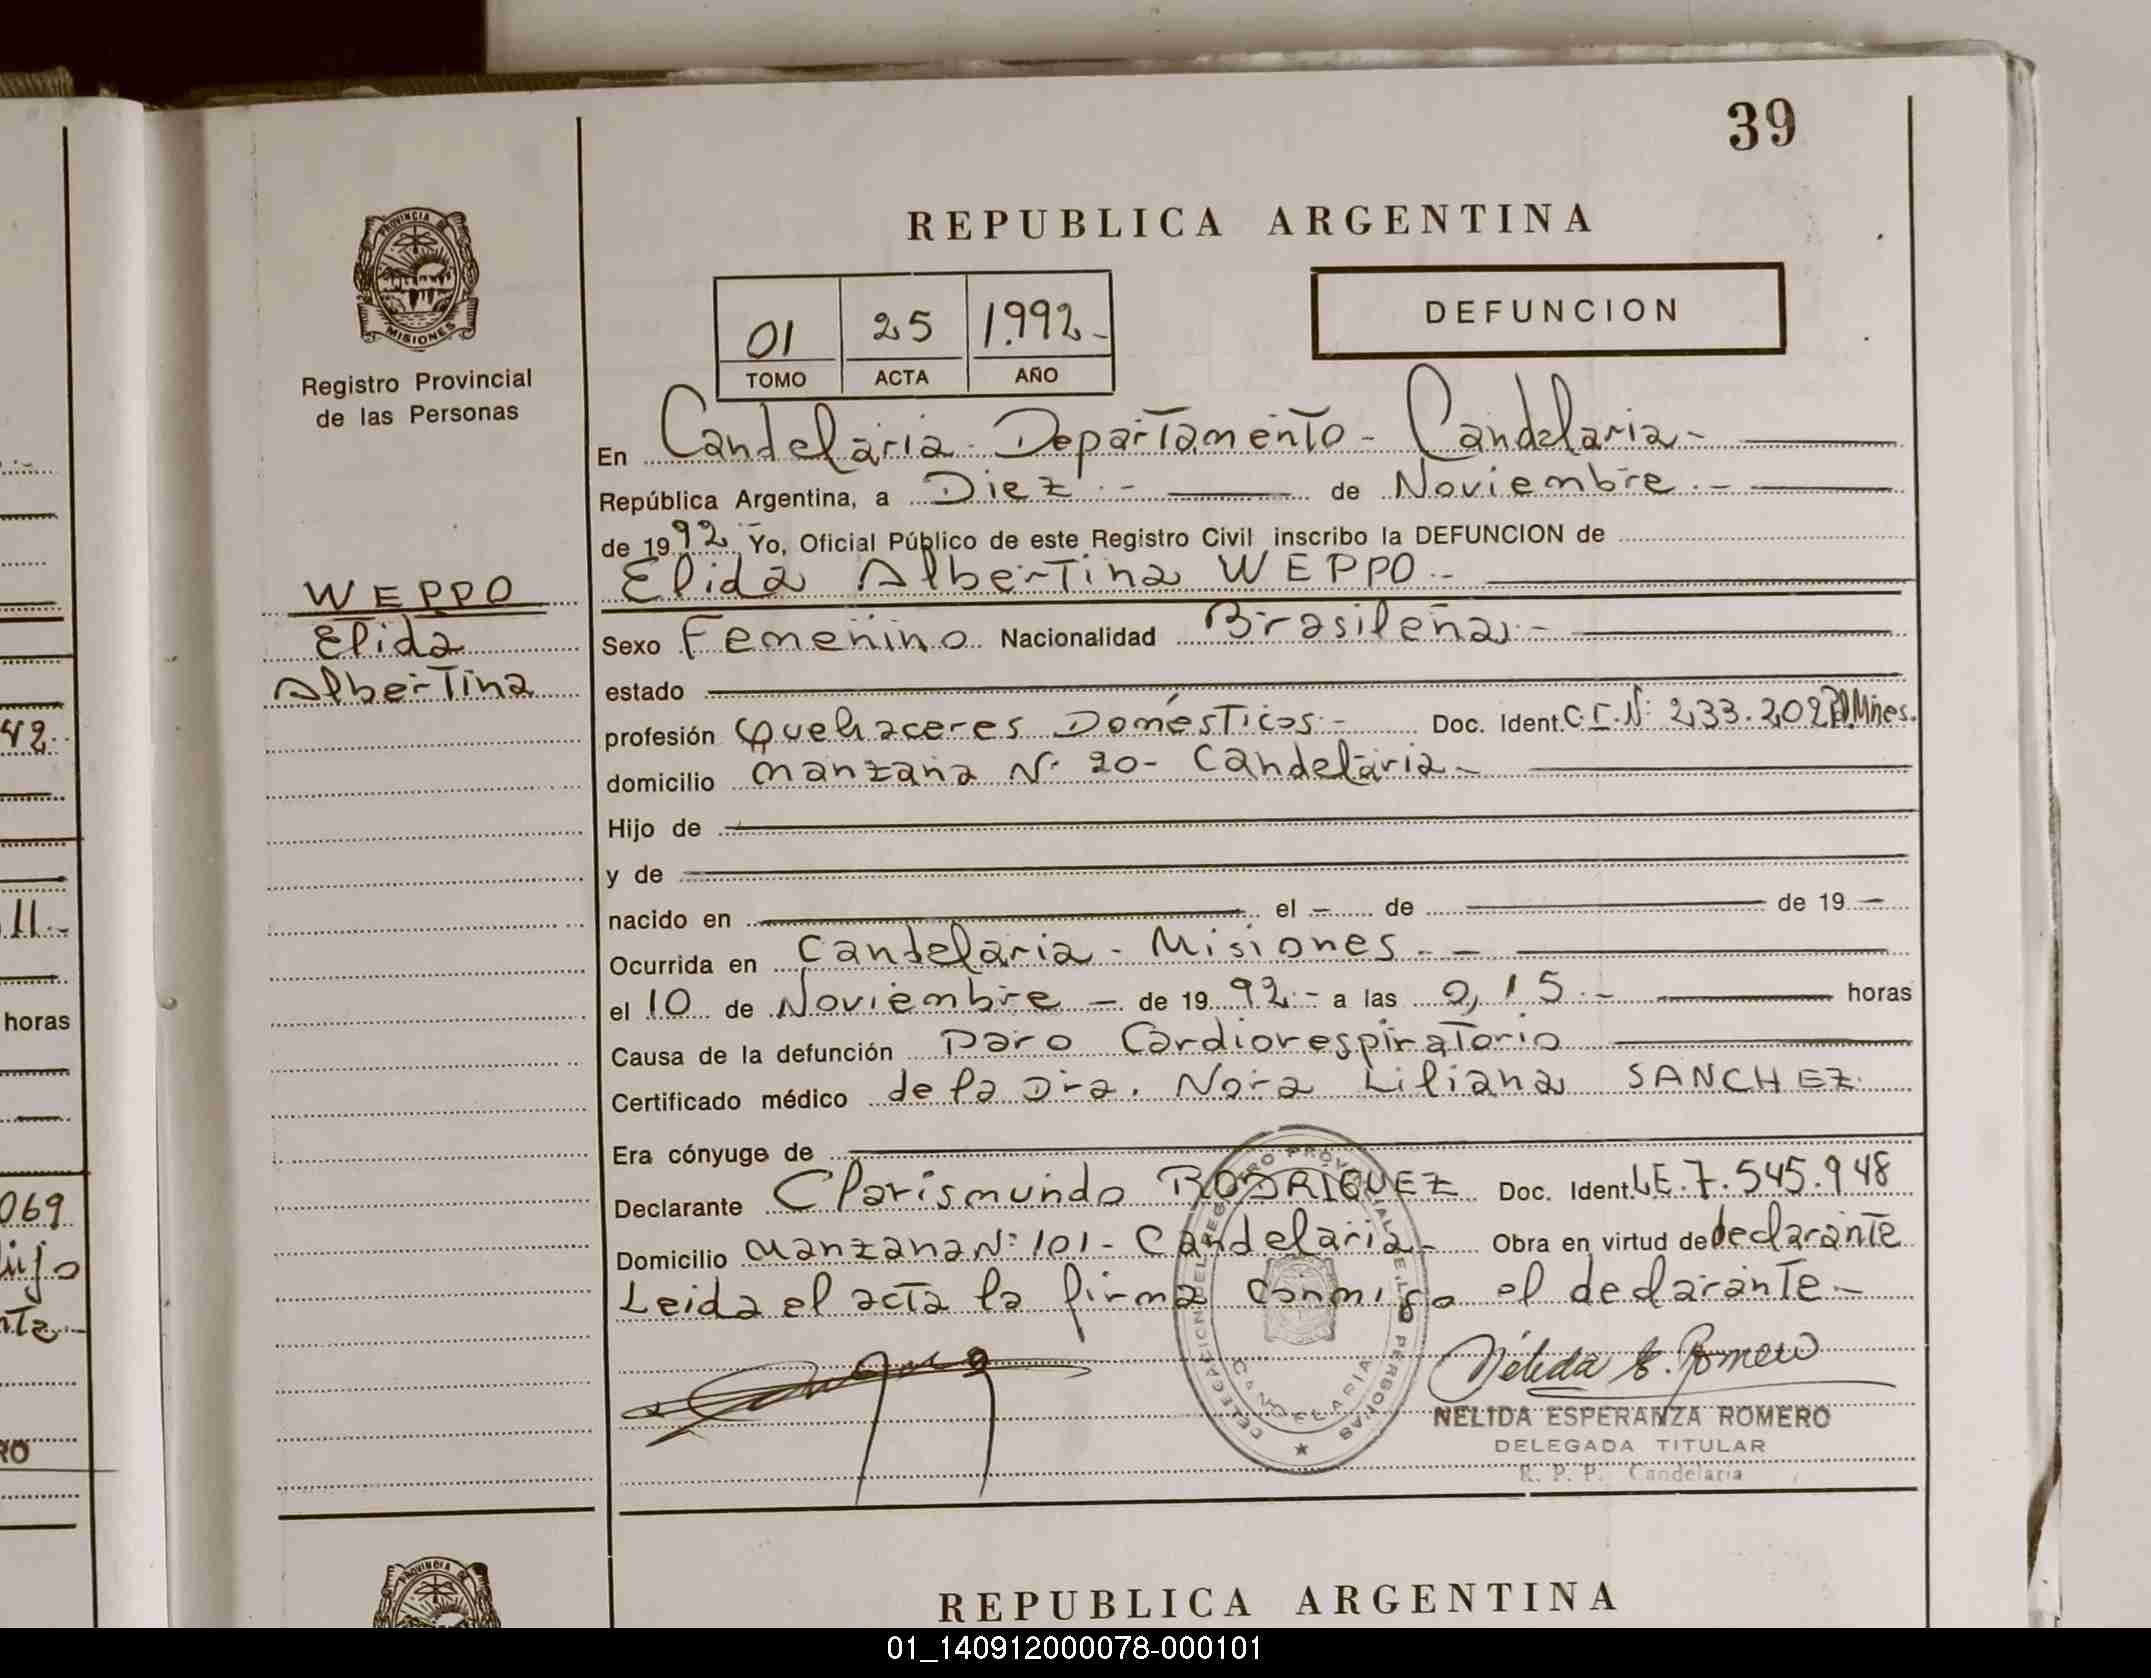 39
REPUBLICA ARGENTINA
PROVINCIA DE
MISIONES
Registro Provincial
de las Personas
01 25 1.992-
TOMO ACTA AÑO
DEFUNCION
En Candelaria - Departamento - Candelaria -
República Argentina, a Diez - de Noviembre -
de 1992 Yo, Oficial Público de este Registro Civil inscribo la DEFUNCION de
Elida Albertina WEPPO -
WEPPO
Elida
Albertina
Sexo Femenino Nacionalidad Brasileña -
estado
profesión Quehaceres Domésticos - Doc. Ident. C.I.Nº 233.202 P.Mnes.
domicilio manzana Nº 20 - Candelaria -
Hijo de
y de
nacido en el - de de 19 -
Ocurrida en Candelaria - Misiones -
el 10 de Noviembre - de 1992 - a las 0,15 - horas
Causa de la defunción Paro Cardiorespiratorio
Certificado médico de la Dra. Nora Liliana SANCHEZ
Era cónyuge de
Declarante Clarismundo RODRIGUEZ Doc. Ident. LE.7.545.948
Domicilio manzana Nº 101 - Candelaria - Obra en virtud de declarante
Leida el acta la firma conmigo el declarante -
DELEGACION DEL REGISTRO PROVINCIAL DE LAS PERSONAS
CANDELARIA
Nélida E. Romero
NELIDA ESPERANZA ROMERO
DELEGADA TITULAR
R. P. P. Candelaria
42
11.-
horas
069
ijo
nte
RO
PROVINCIA DE
REPUBLICA ARGENTINA
01_140912000078-000101